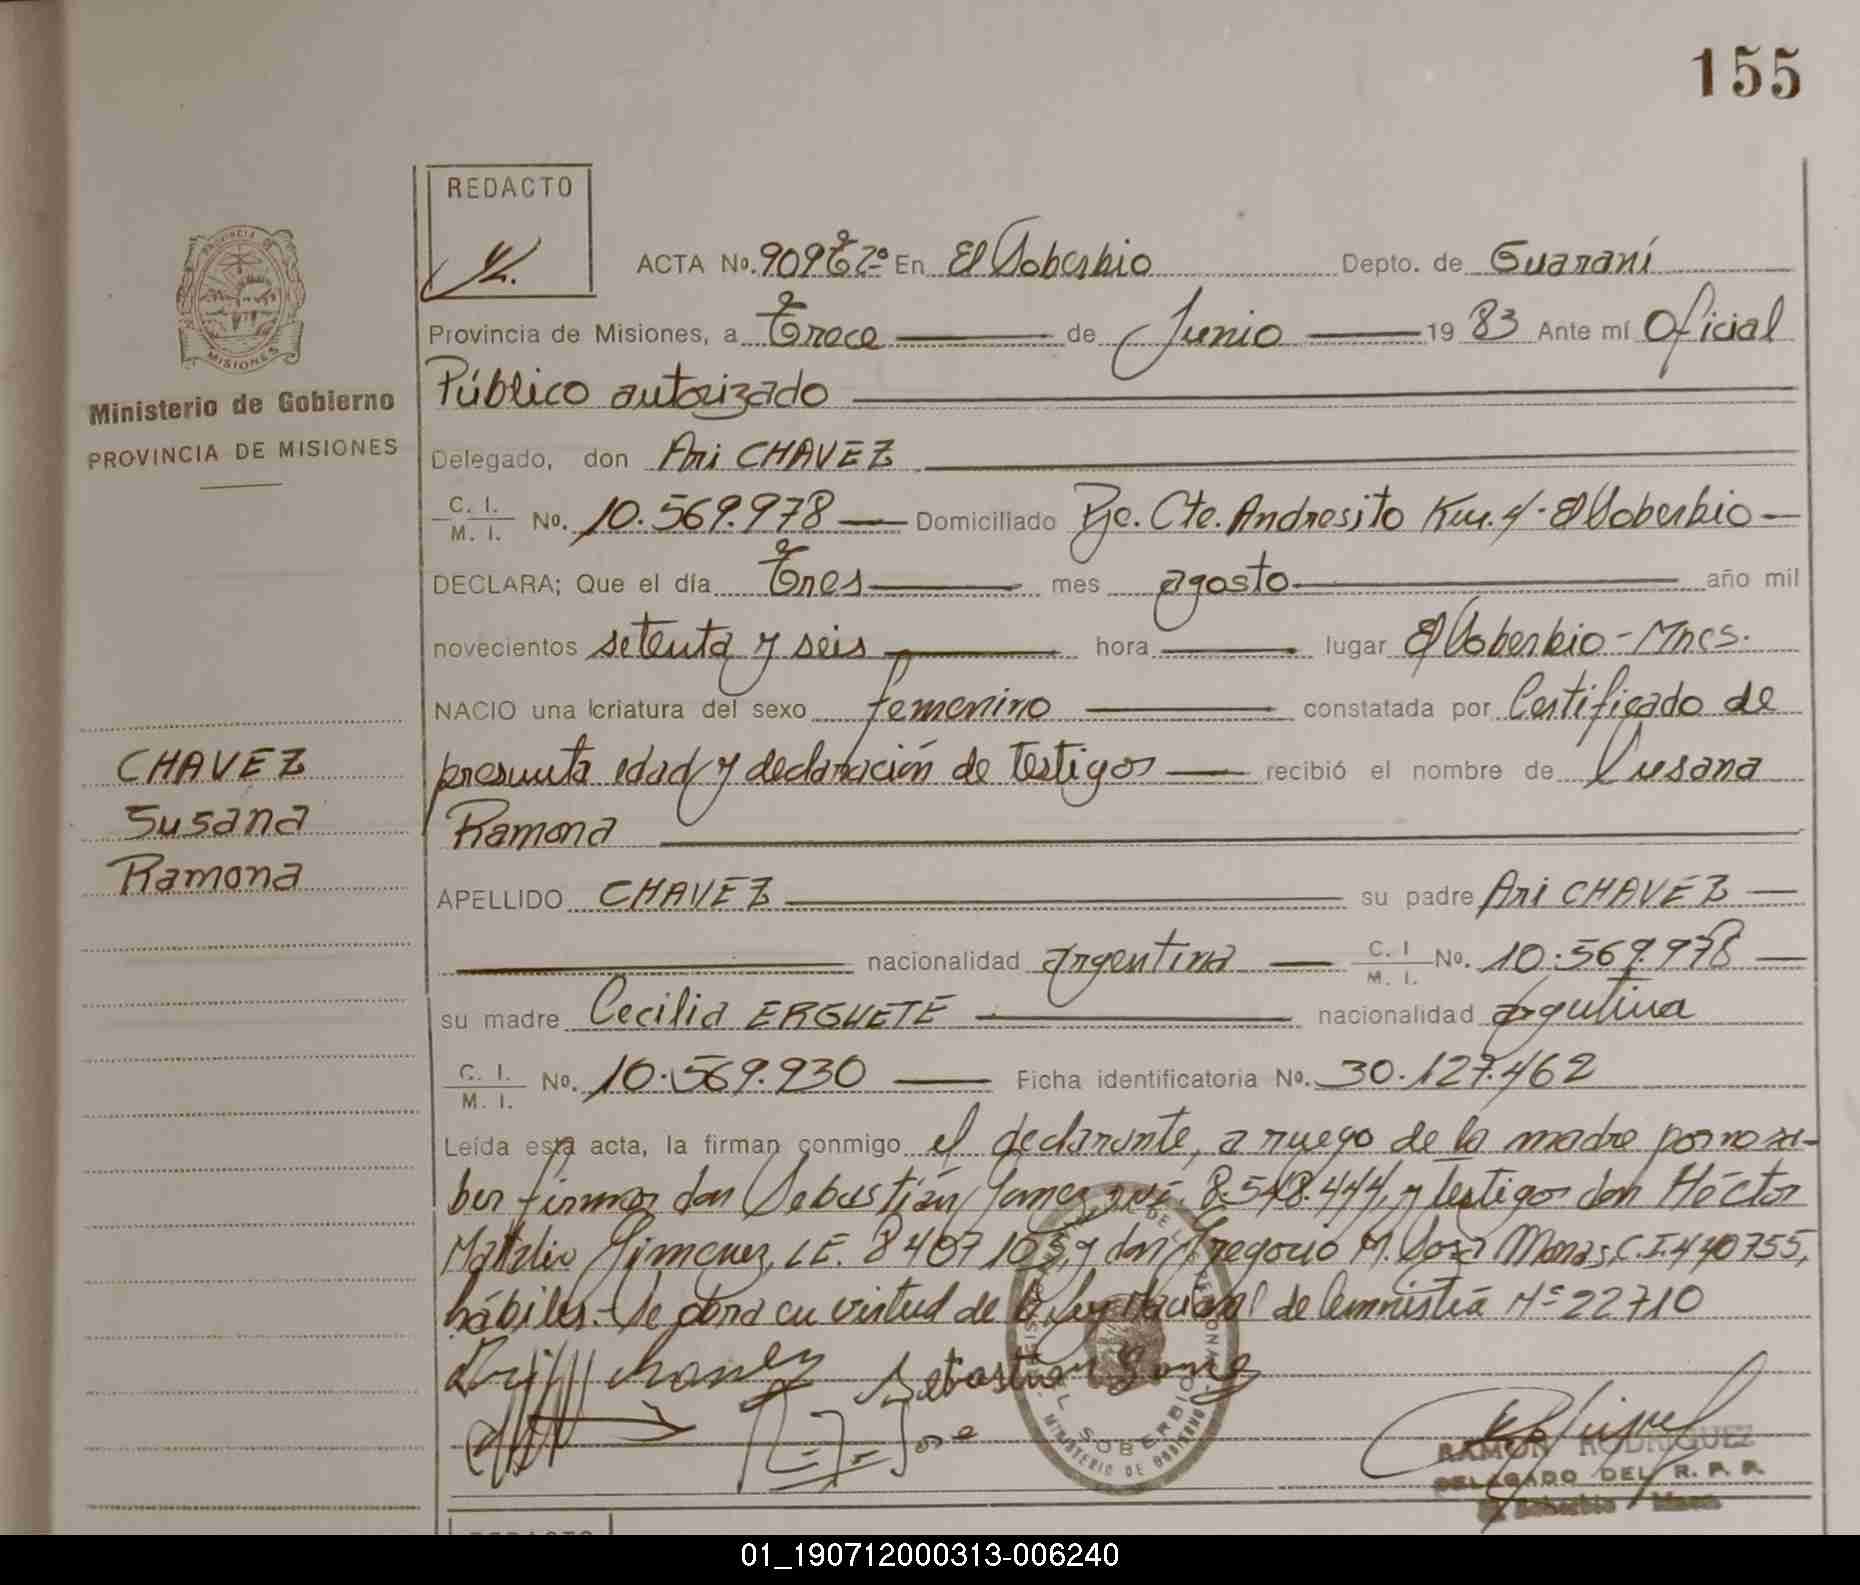 155
REDACTO
ACTA No. 909 T 7º En El Soberbio Depto. de Guaraní
Provincia de Misiones, a Trece de Junio 19 83 Ante mí Oficial
Público autorizado
PROVINCIA DE
MISIONES
Ministerio de Gobierno
PROVINCIA DE MISIONES
Delegado, don Ari CHAVEZ
C. I.
M. I. No. 10.569.978 Domiciliado Pje. Cte. Andresito Km. 4 - El Soberbio
DECLARA; Que el día Tres mes agosto año mil
novecientos setenta y seis hora lugar El Soberbio - Mnes.
NACIO una criatura del sexo femenino constatada por Certificado de
presunta edad y declaración de testigos recibió el nombre de Susana
Ramona
CHAVEZ
Susana
Ramona
APELLIDO CHAVEZ su padre Ari CHAVEZ
nacionalidad argentina C. I
M. I. No. 10.569.978
su madre Cecilia ERGUETE nacionalidad argentina
C. I.
M. I. No. 10.569.930 Ficha identificatoria No. 30.127.462
Leída esta acta, la firman conmigo el declarante, a ruego de la madre por no sa-
ber firmar don Sebastián Gomez, 8.548.444, y testigos don Héctor
Gimenez, LE. 8407103, y don Gregorio M. Sosa C.I. 440755,
hábiles.- Se obra en virtud de la Ley Nacional de Amnistía Nº 22710
Ari Chavez Sebastian Gomez
EL SOBERBIO
MINISTERIO DE GOBIERNO
RAMON RODRIGUEZ
DELEGADO DEL R. P. P.
El Soberbio - Mnes.
REDACTO
01_190712000313-006240